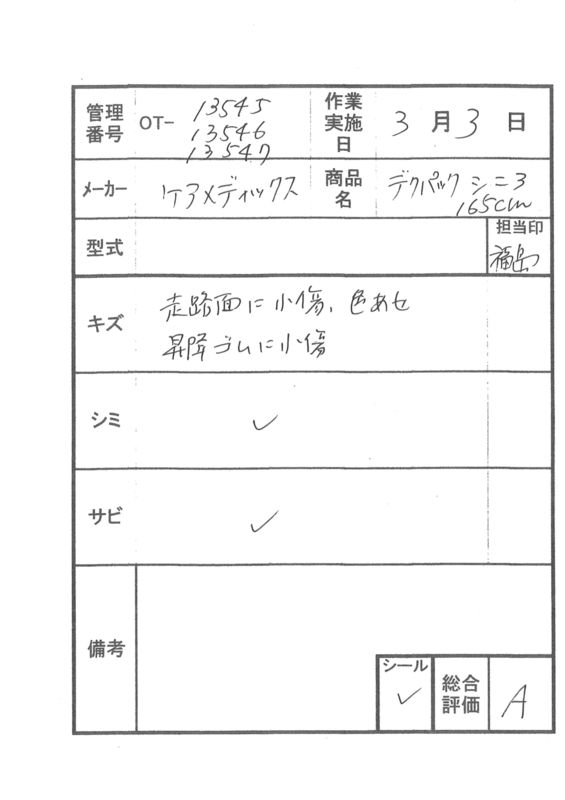 管理番号 OT- 13545
13546
13547
作業実施日 3月3日
メーカー ケアメディックス
商品名 デクパック シニア
165cm
型式
担当印
福島
キズ 走路面に小傷、色あせ
昇降ゴムに小傷
シミ ✓
サビ ✓
備考
シール ✓
総合評価 A